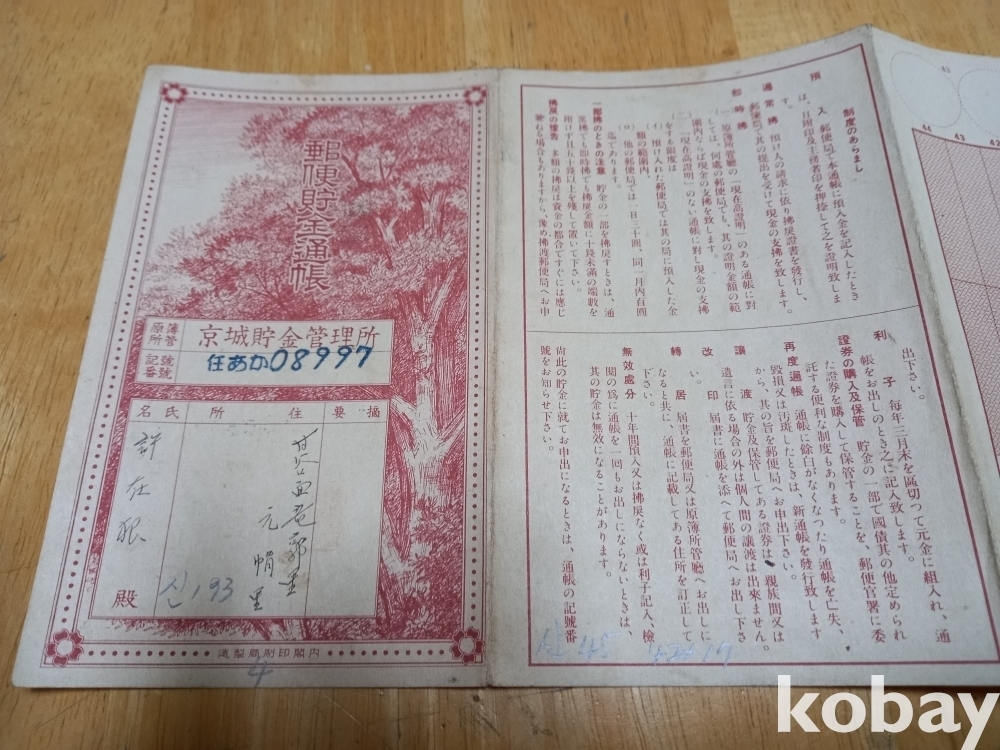 郵便貯金通帳
原簿所管
京城貯金管理所
記號番號
任あか08997
摘要
住所
氏名
元
里
許在
殿
신193
内閣印刷局製造
4
制度のあらまし
預入 郵便局で本通帳に預入金を記入したとき
は、日附印及主務者印を押捺して之を證明致しま
す。
通常拂 預け人の請求に依り拂戻證書を發行し、
郵便局で其の提出を受けて現金の支拂を致します。
即時拂
(一)原簿所管廳の「現在高證明」のある通帳に對
しては、何處の郵便局でも、其の證明金額の範
圍内ならば現金の支拂を致します。
(二)「現在高證明」のない通帳に對し現金の支拂
をする限度は
(イ)預け入れた郵便局では其の局に預入した金
額の範圍内。
(ロ)他の郵便局では一日二十圓、同一月内百圓
迄であります。
一部拂のときの注意 貯金の一部を拂戻すときは、通
常拂でも即時拂でも拂戻金額に十錢未滿の端數を
附けず且五十錢以上を殘して置いて下さい。
拂戻の豫告 多額の拂戻は資金の都合ですぐには應じ
兼ねる場合もありますから、豫め拂渡郵便局へお申
出下さい。
利子 毎年三月末を區切つて元金に組入れ、通
帳をお出しのとき之に記入致します。
證券の購入及保管 貯金の一部で國債其の他定められ
た證券を購入して保管することを、郵便官署に委
託する便利な制度もあります。
再度通帳 通帳に餘白がなくなつたり通帳を亡失、
毀損又は汚斑したときは、新通帳を發行致します
から、其の旨を郵便局へお申出下さい。
讓渡 貯金及保管してある證券は、親族間又は
遺言に依る場合の外は個人間の讓渡は出來ません。
改印 屆書に通帳を添へて郵便局へお出し下さ
い。
轉居 屆書を郵便局又は原簿所管廳へお出しに
なると共に、通帳に記載してある住所を訂正して
下さい。
無效處分 十年間預入又は拂戻なく或は利子記入、檢
閲の爲に通帳を一回もお出しにならないときは、
其の貯金は無效になることがあります。
尚此の貯金に就てお申出になるときは、通帳の記號番
號をお知らせ下さい。
43
44
43
42
kobay